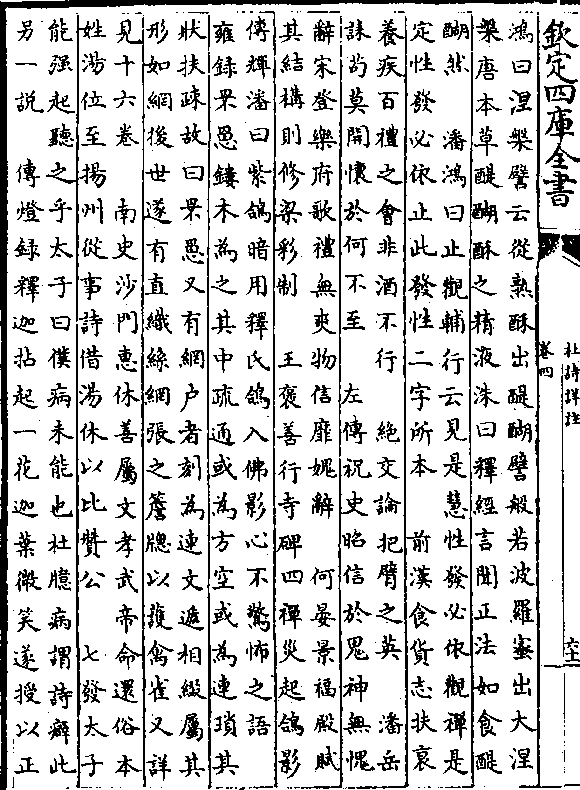 欽定四庫全書
杜詩詳註
卷四
六十二
鴻曰涅槃譬云從熟酥出醍醐譬般若波羅蜜出大涅
槃唐本草醍醐酥之精液洙曰釋經言聞正法如食醍
醐然　潘鴻曰止觀輔行云見是慧性發必依觀禪是
定性發必依止此發性二字所本　前漢食貨志扶衰
養疾百禮之會非酒不行　絶交論把臂之英　潘岳
誄苟莫開懷於何不至　左傳祝史昭信於鬼神無愧
辭宋登樂府歌禮無爽物信靡媿辭　何晏景福殿賦
其結構則修梁彩制　王褒善行寺碑四禪災起鴿影
傳輝潘曰紫鴿暗用釋氏鴿入佛影心不驚怖之語
雍錄罘罳鏤木為之其中疏通或為方空或為連瑣其
狀扶疎故曰罘罳又有網户者刻為連文遞相綴屬其
形如網後世遂有直織絲網張之簷牕以護禽雀又詳
見十六卷　南史沙門惠休善屬文孝武帝命還俗本
姓湯位至揚州從事詩借湯休以比贊公　七發太子
能强起聽之乎太子曰僕病未能也杜臆病謂詩癖此
另一説　傳燈録釋迦拈起一花迦葉微笑遂授以正